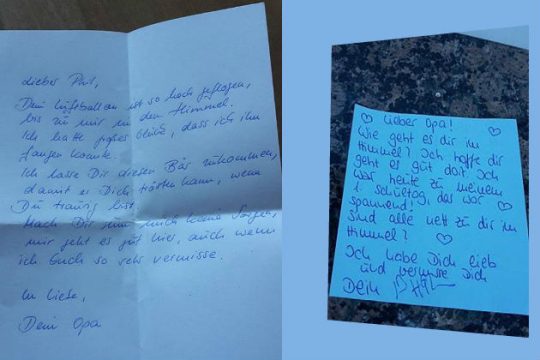 lieber Phil,
Dein Luftballon ist so hoch geflogen,
bis zu mir in den Himmel.
Ich hatte großes Glück, dass ich ihn
fangen konnte.
Ich lasse Dir diesen Bär zukommen,
damit er Dich trösten kann, wenn
Du traurig bist.
Mach Dir um mich keine Sorgen,
mir geht es gut hier, auch wenn
ich Euch so sehr vermisse.
In Liebe,
Dein Opa
Lieber Opa!
Wie geht es dir im
Himmel? Ich hoffe dir
geht es gut dort. Ich
war heute zu meinem
1. Schultag, das war
spannend!
Sind alle nett zu dir im
Himmel?
Ich habe Dich lieb
und vermisse Dich
Dein